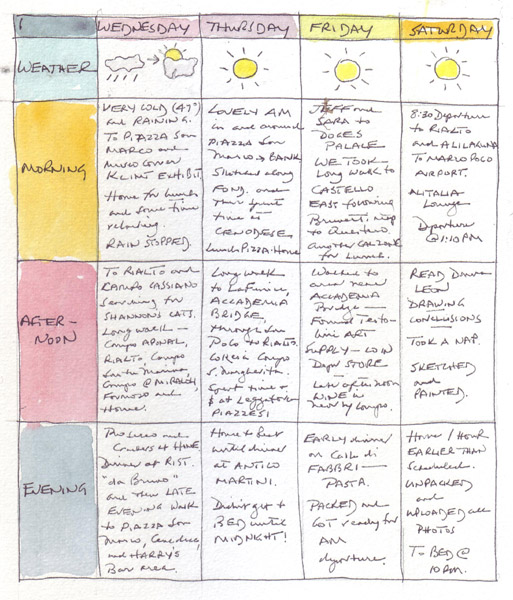 WEDNESDAY THURSDAY FRIDAY SATURDAY
WEATHER
MORNING
VERY COLD (47°)
and RAINING.
To PIAZZA San
MARCO and
museo Correr
KLIMT EXHIBIT.
Home for lunch
and some time
relaxing.
RAIN STOPPED.
LOVELY AM
in and around
PIAZZA San
Marco → BANK
Sketched along
FOND. and
then spent
time in
GENODESE
Lunch: Pizza. Home
JEFF and
SARA to
DOGES
PALACE
WE TOOK
Long walk to
CASTELLO
EAST following
Brunetti map
to Questura.
another Calzone
for Lunch.
8:30 Departure
to RIALTO
and ALILAGUNA
To MARCO POLO
AIRPORT.
ALITALIA
Lounge
Departure
@ 1:10 PM
AFTER-
NOON
To RIALTO and
CAMPO CASSIANO
Searching for
SHANNON'S CATS.
Long walk —
Campo APONAL,
RIALTO, Campo
Santa Marina,
Campo @ MIRACOLI,
Formosa and
Home.
Long walk
to La Fenice,
ACCADEMIA
BRIDGE,
through San
POLO to RIALTO.
Coffee in Campo
S. Margherita.
Spent time &
$ at Leggatoria
PIAZZESI
Walked to
area near
ACCADEMIA
Bridge —
Found Testo-
lini ART
SUPPLY — LOIN
Dept STORE
Late afternoon
WINE in
nearby Campo.
READ Donna
LEON
DRAWING
CONCLUSIONS
TOOK A NAP.
SKETCHED
and
PAINTED.
EVENING
Prosecco and
Comers at HOME
Dinner at RIST.
"da Bruno"
and then LATE
EVENING WALK
to PIAZZA San
Marco,
and HARRY'S
Bar area.
Home to rest
until dinner
at ANTICO
MARTINI.
Didn't get to
BED until
MIDNIGHT!
EARLY dinner
on Calle di
FABBRI —
PASTA.
PACKED and
GOT ready for
AM
departure.
Home 1 HOUR
EARLIER THAN
Scheduled.
UNPACKED
and
UPLOADED all
PHOTOS
TO BED @
10 PM.